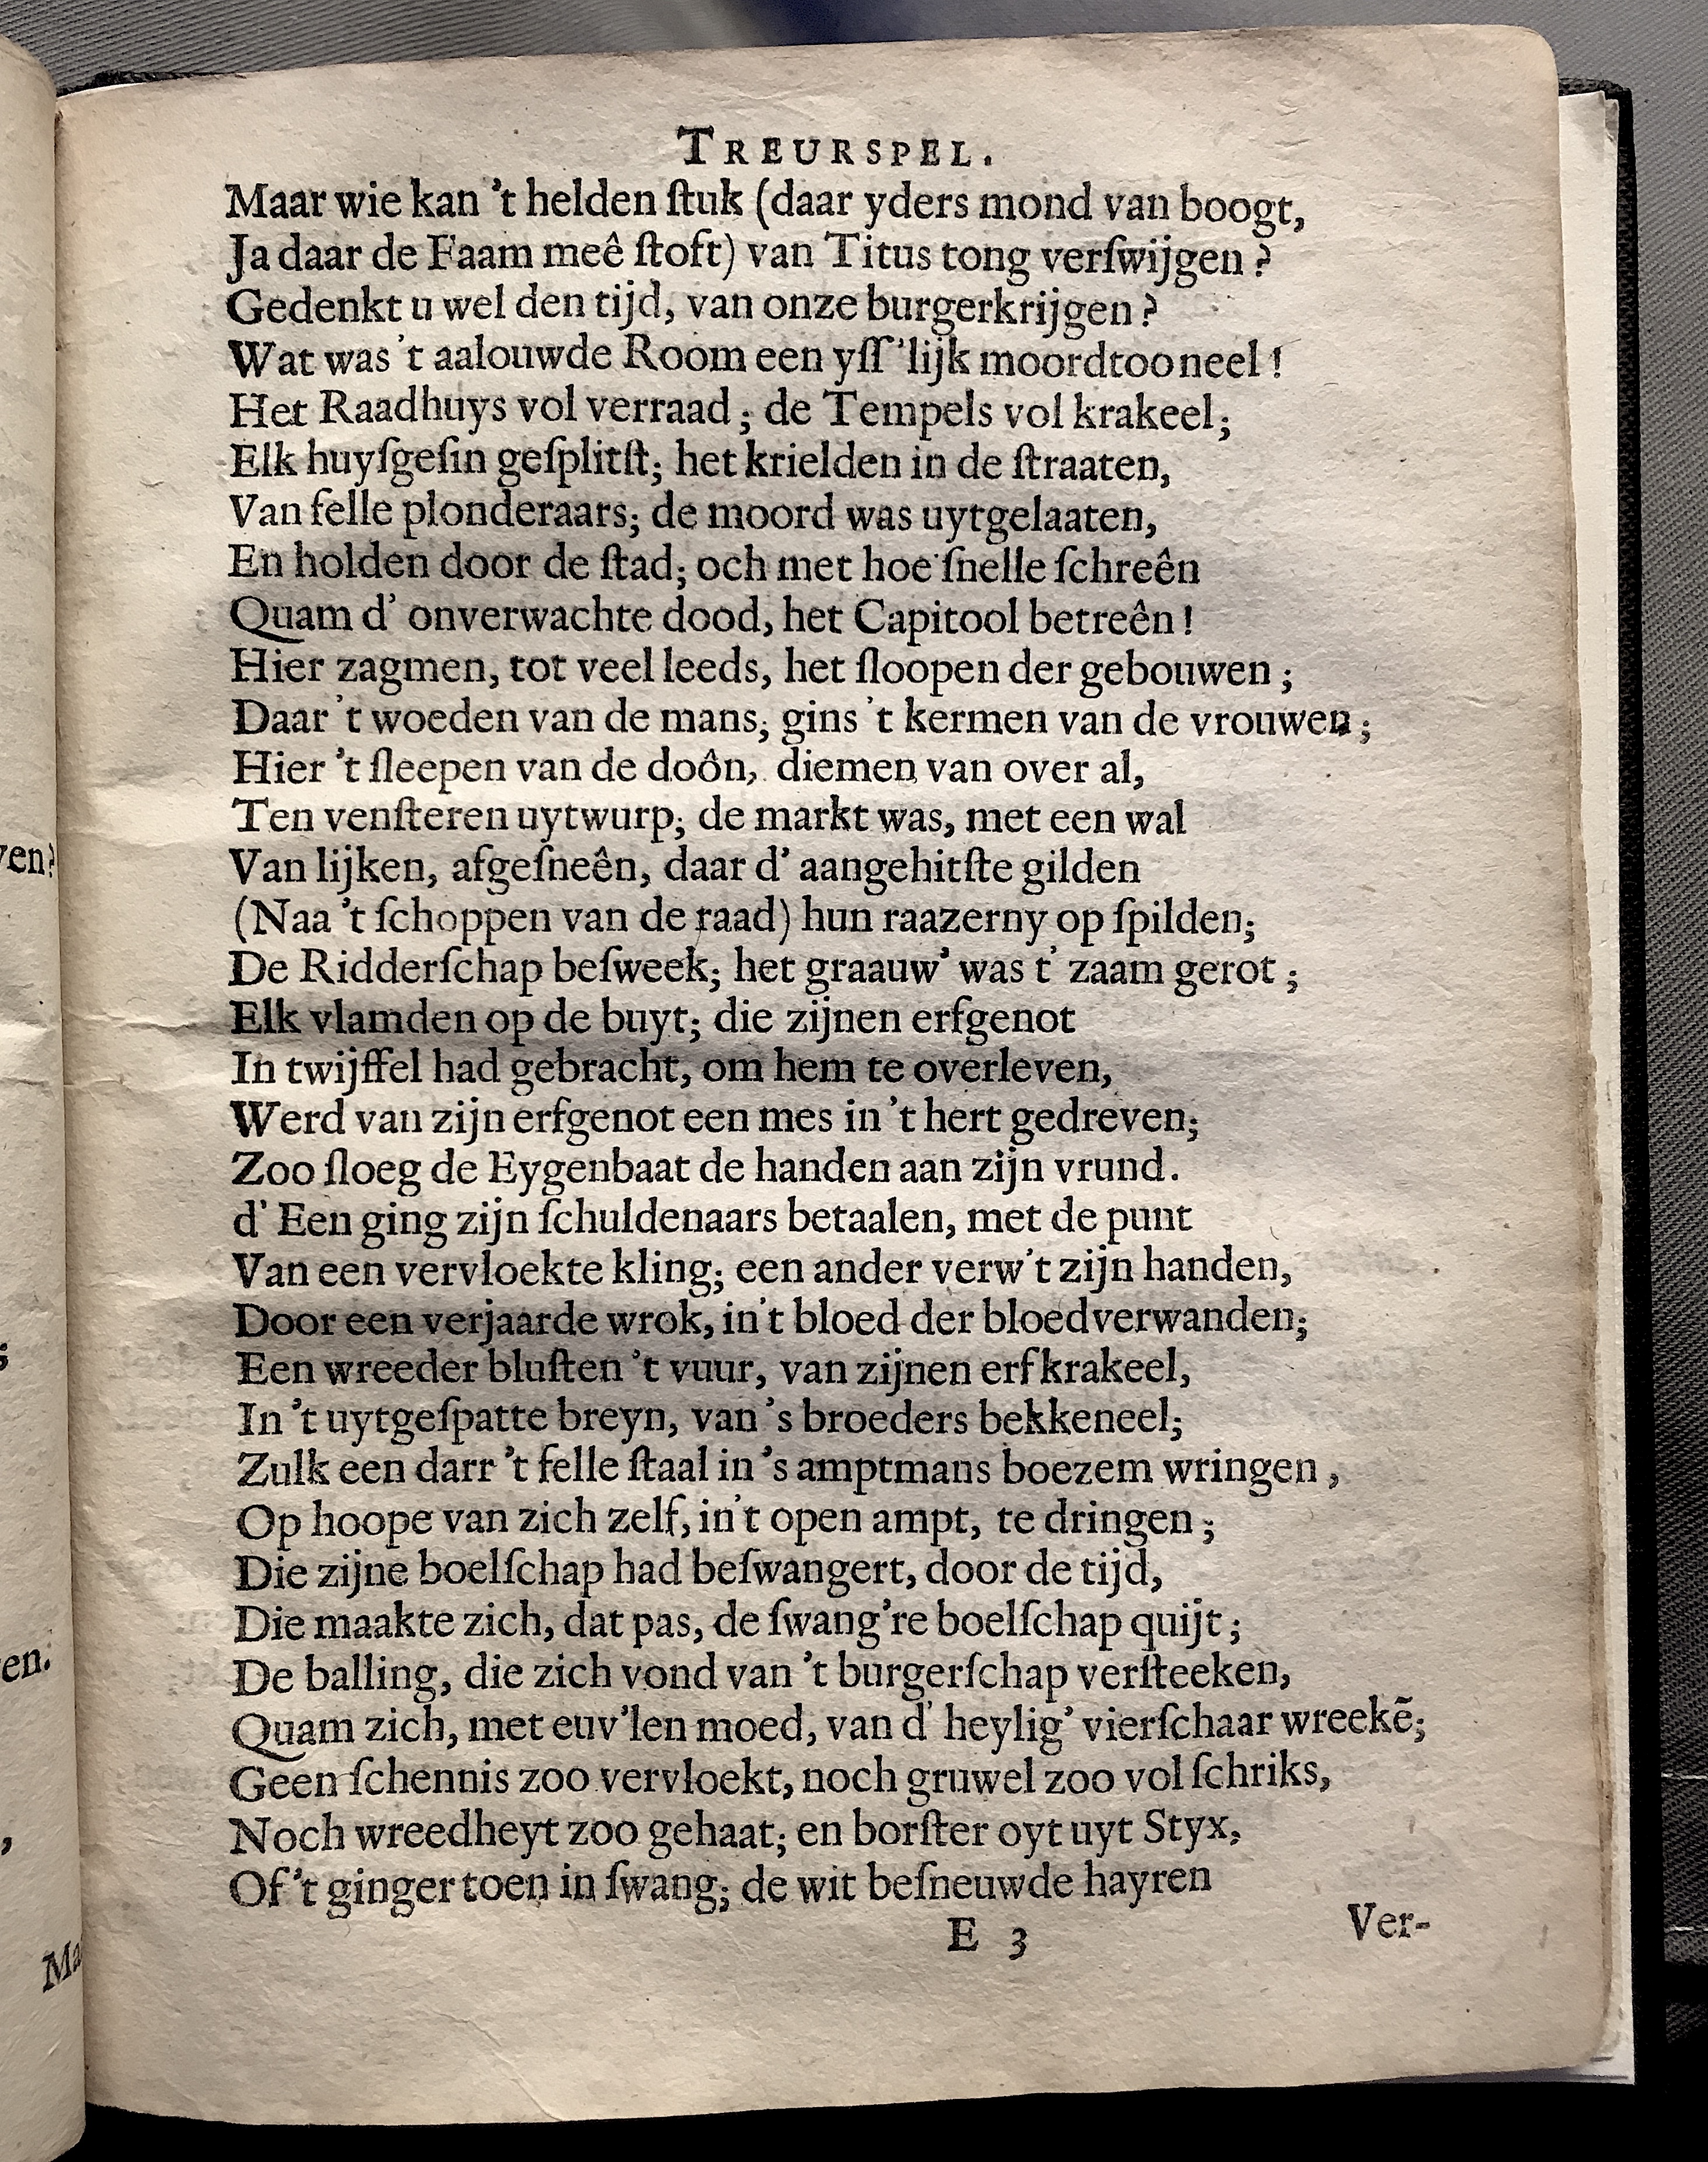 TREURSPEL.
Maar wie kan 't helden ſtuk (daar yders mond van boogt,
Ja daar de Faam meê ſtoft) van Titus tong verſwijgen?
Gedenkt u wel den tijd, van onze burgerkrijgen?
Wat was 't aalouwde Room een yſſ'lijk moordtooneel!
Het Raadhuys vol verraad; de Tempels vol krakeel;
Elk huyſgeſin geſplitſt; het krielden in de ſtraaten,
Van felle plonderaars; de moord was uytgelaaten,
En holden door de ſtad; och met hoe ſnelle ſchreên
Quam d' onverwachte dood, het Capitool betreên!
Hier zagmen, tot veel leeds, het ſloopen der gebouwen;
Daar 't woeden van de mans; gins 't kermen van de vrouwen;
Hier 't ſleepen van de doôn, diemen van over al,
Ten venſteren uytwurp; de markt was, met een wal
Van lijken, afgeſneên, daar d' aangehitſte gilden
(Naa 't ſchoppen van de raad) hun raazerny op ſpilden;
De Ridderſchap beſweek; het graauw' was t' zaam gerot;
Elk vlamden op de buyt; die zijnen erfgenot
In twijffel had gebracht, om hem te overleven,
Werd van zijn erfgenot een mes in 't hert gedreven;
Zoo ſloeg de Eygenbaat de handen aan zijn vrund.
d' Een ging zijn ſchuldenaars betaalen, met de punt
Van een vervloekte kling; een ander verw't zijn handen,
Door een verjaarde wrok, in't bloed der bloedverwanden;
Een wreeder bluſten 't vuur, van zijnen erfkrakeel,
In 't uytgeſpatte breyn, van 's broeders bekkeneel;
Zulk een darr 't felle ſtaal in 's amptmans boezem wringen,
Op hoope van zich zelf, in't open ampt, te dringen;
Die zijne boelſchap had beſwangert, door de tijd,
Die maakte zich, dat pas, de ſwang're boelſchap quijt;
De balling, die zich vond van 't burgerſchap verſteeken,
Quam zich, met euv'len moed, van d' heylig' vierſchaar wreekẽ;
Geen ſchennis zoo vervloekt, noch gruwel zoo vol ſchriks,
Noch wreedheyt zoo gehaat; en borſter oyt uyt Styx,
Of 't ginger toen in ſwang; de wit beſneuwde hayren
E 3 Ver-